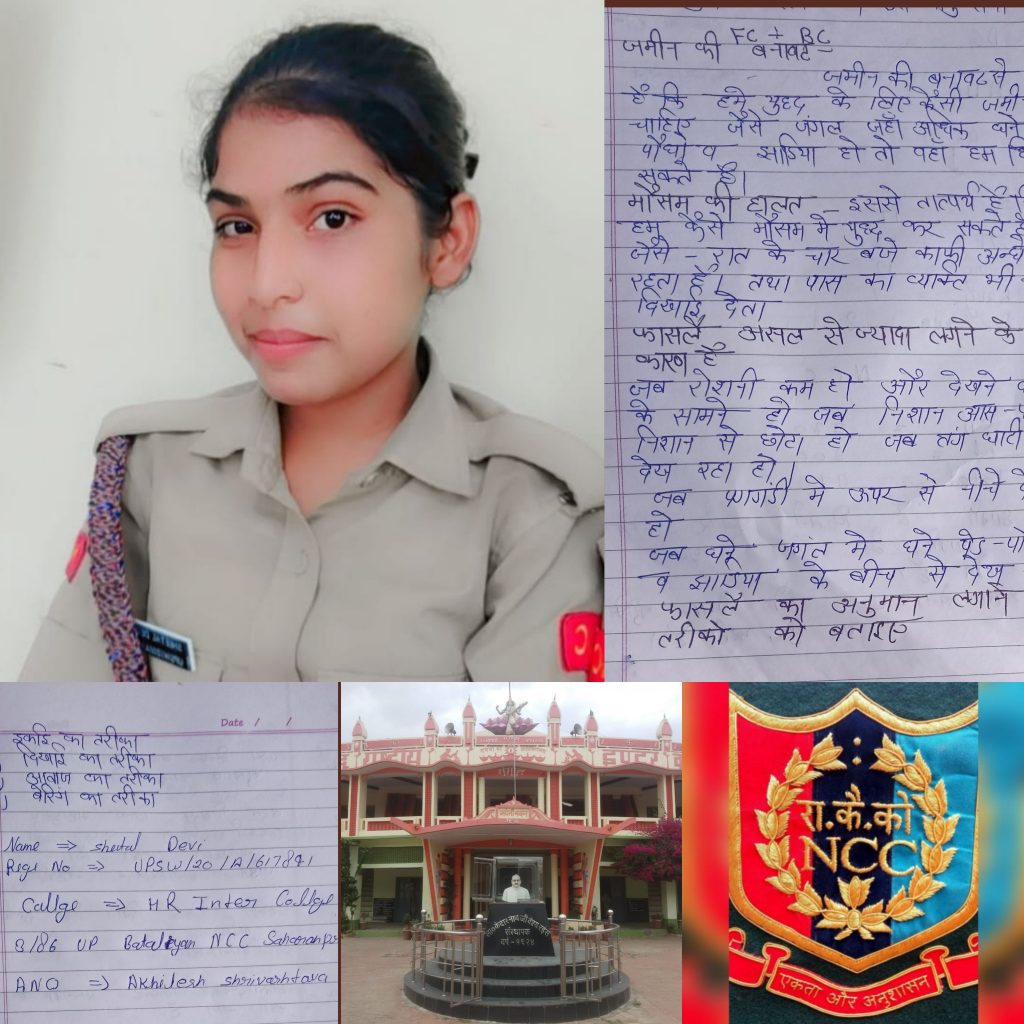 FC + BC
जमीन की बनावट -
जमीन की बुनावट से
है कि हमे युद्द के लिए कैसी जमी
चाहिए जैसे जंगल जहाँ अधिक
पौधो व झाडिया हो तो वहा हम
सकते है।
मौसम की हालत - इससे तात्पर्य है
हम कैसे मौसम मे युद्द कर सकते है
जैसे - रात के चार बजे काफी अन्धे
रहता है। तथा पास का व्यक्ति भी
दिखाई देता
फासले असल से ज्यादा लगने के
कारण है
जब रोशनी कम हो और देखने
के सामने हो जब निशान आस-
निशान से छोटा हो जब तंग घाटी
देख रहा हो।
जब पगडंडी मे ऊपर से नीचे
हो
जब घने जगंल मे घने पेड-पो
व झाडिया के बीच से देख
फासले का अनुमान लगाने
तरीको को बताइए
Date / /
इकाई का तरीका
दिखाई का तरीका
आवाज का तरीका
बैरिंग का तरीका
Name ⇒ sheetal Devi
Regi No ⇒ UPSW/20/A/617841
Callge ⇒ HR Inter College
8/86 UP Batalyan NCC Saharanpur
ANO ⇒ Akhilesh shrivashtava
संस्थापक
वर्ष - १९२४
रा.कै.को
NCC
एकता और अनुशासन